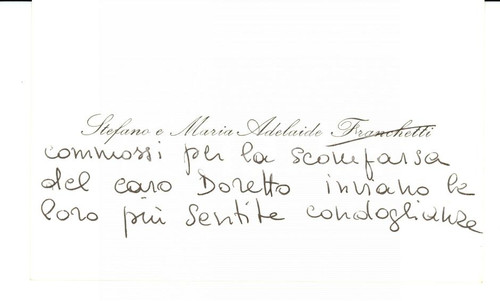 Stefano e Maria Adelaide Franchetti
commossi per la scomparsa
del caro Doretto inviano le
loro più sentite condoglianze